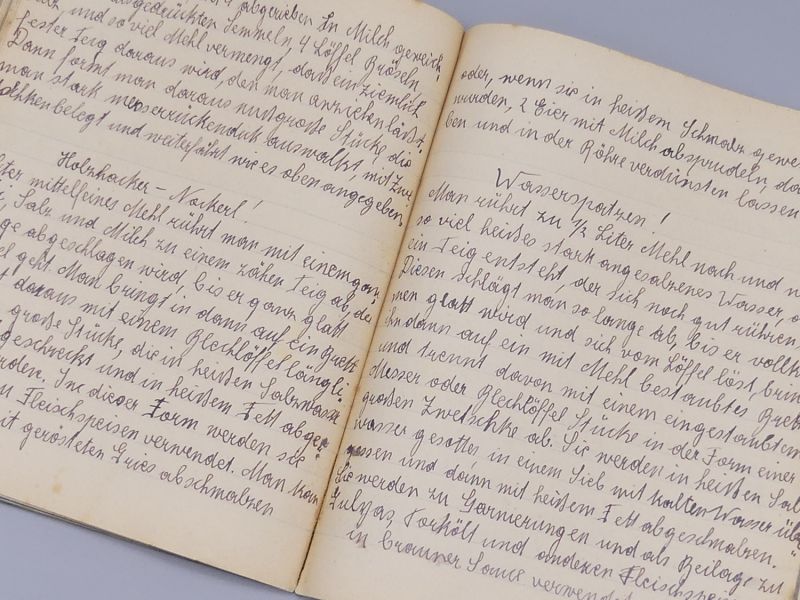 abgerieben In Milch geweich
ausgedrückten Semmeln, 4 Löffel Bröseln,
und so viel Mehl vermengt, daß ein ziemlich
fester Teig daraus wird, den man anziehen läßt,
Dann formt man daraus nußgroße Stücke, die
man stark messerrückendick auswalkt, mit Zwi
belegt und weiterfährt wie es oben angegeben,
Holzhacker-Nockerl!
liter mittelfeines Mehl rührt man mit einem gan
Salz und Milch zu einem zähen Teig ab, der
ge abgeschlagen wird, bis er ganz glatt
geht. Man bringt in dann auf ein Brett
daraus mit einem Blechlöffel längli
große Stücke, die in heißen Salzwasse
geschreckt und in heißem Fett abge
rden. In dieser Form werden sie
Fleischspeisen verwendet. Man kan
it gerösteten Gries abschmalzen
oder, wenn sie in heißem Schmalz gewe
wurden, 2 Eier mit Milch absprudeln, da
ben und in der Röhre verdünsten lassen
Wasserspatzen!
Man rührt zu 1/2 Liter Mehl nach und n
so viel heißes stark angesalzenes Wasser, d
ein Teig entsteht, der sich noch gut rühren
Diesen schlägt man so lange ab, bis er vollk
men glatt wird und sich vom Löffel löst, brin
ihn dann auf ein mit Mehl bestaubtes Brett
und trennt davon mit einem eingestaubten
Messer oder Blechlöffel Stücke in der Form einer
großen Zwetschke ab. Sie werden in heißen Sal
wasser gesotten in einem Sieb mit kalten Wasser übe
gossen und dann mit heißem Fett abgeschmalzen.
Sie werden zu Garnierungen und als Beilage zu
Gulyas, Porkölt und anderen Fleischspei
in brauner Sauce verwendet